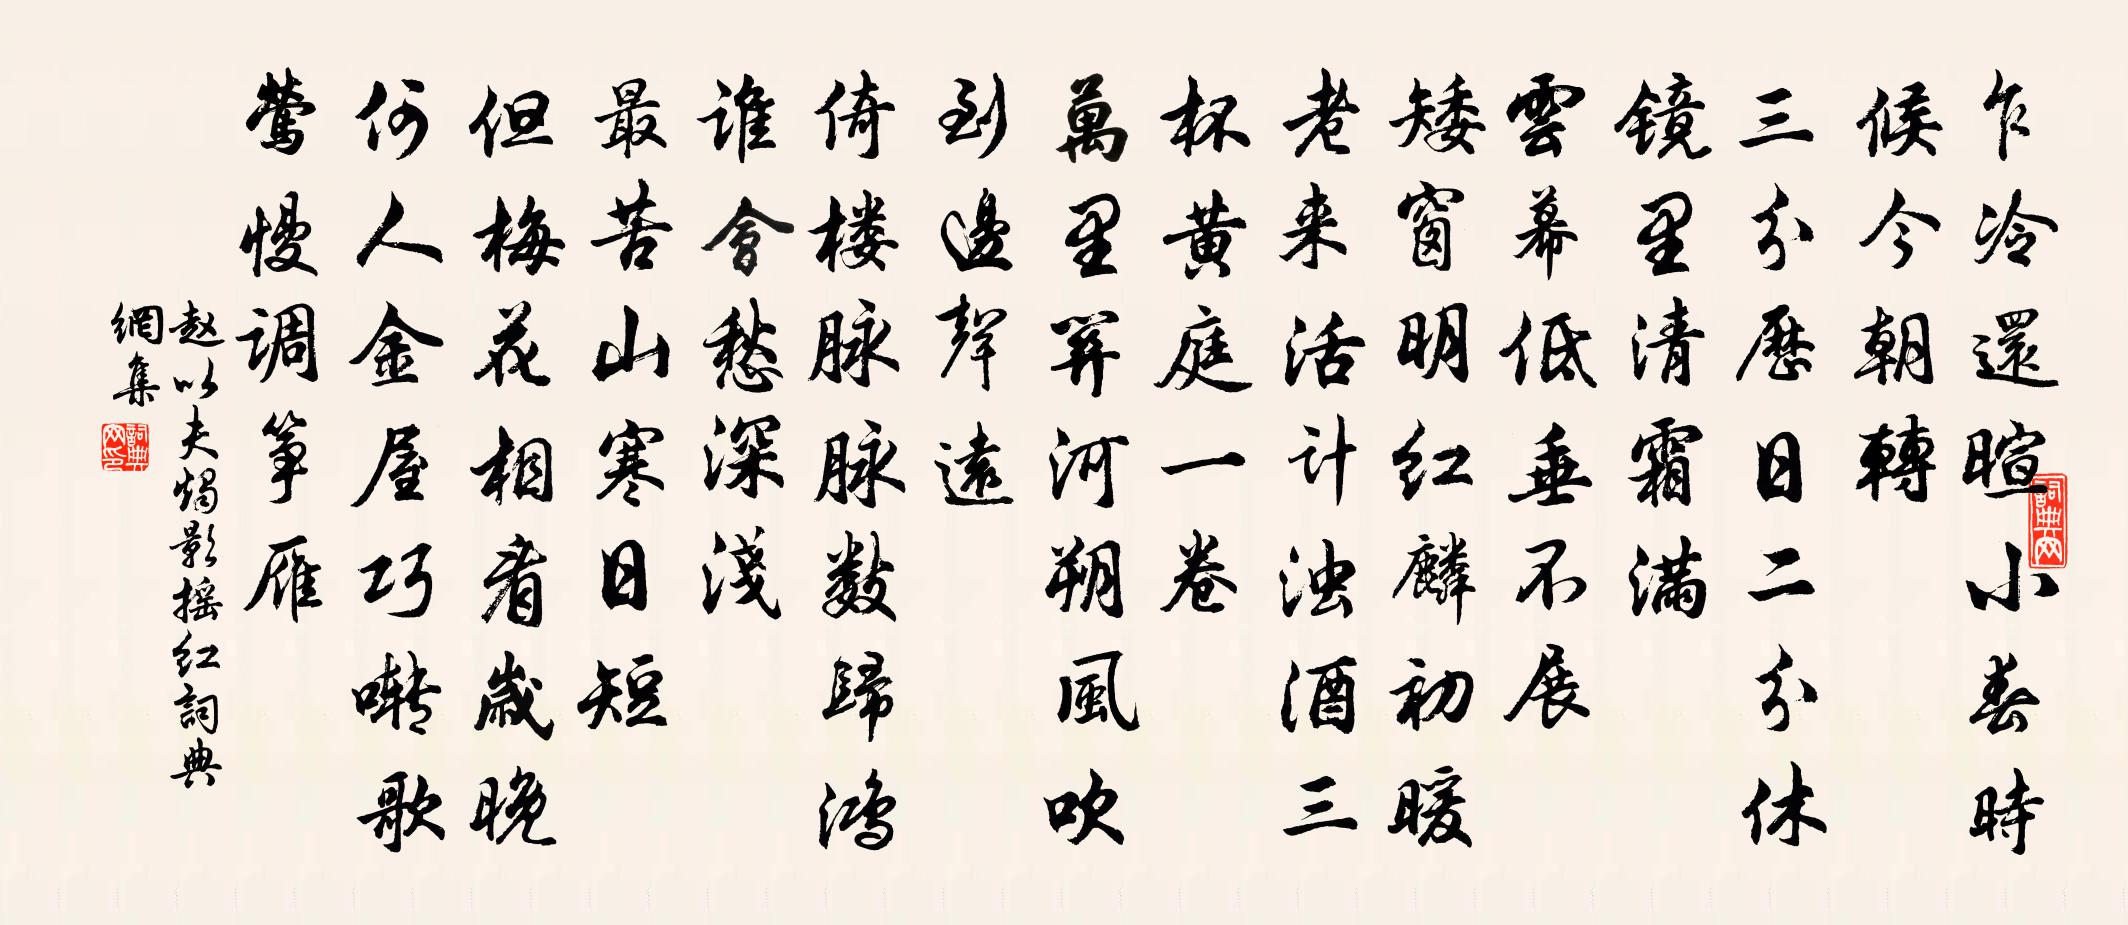 乍冷還暄小春時
候今朝轉
三分歷日二分休
镜里清霜满
雲幕低垂不展
矮窗明红麟初暖
老来活计浊酒三
杯黄庭一卷
萬里關河朔風吹
到邊聲遠
倚楼脉脉数歸鸿
谁會愁深淺
最苦山寒日短
但梅花相看歲晚
何人金屋巧啭歌
莺慢调筝雁
赵以夫燭影摇红詞典
網集
詞典网